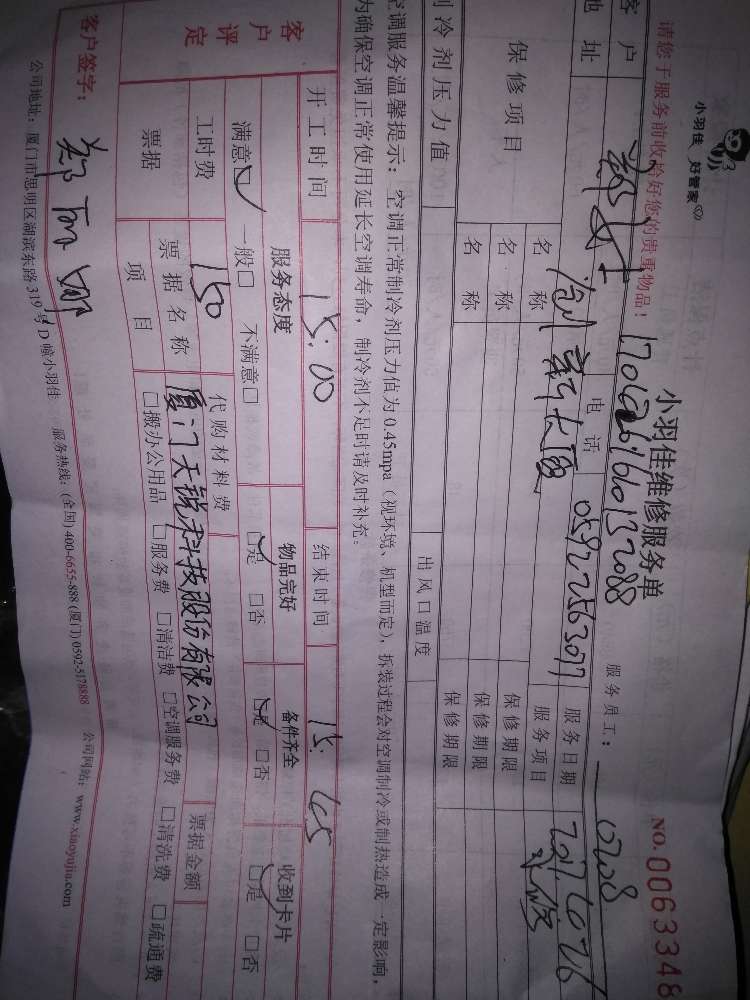 小羽佳 好管家
小羽佳维修服务单
NO.0063348
请您于服务前收拾好您的贵重物品!
服务员工: 0208
客户 郑女士
电话 0592 2563077
服务日期 2017 6 26
地址
服务项目
保修项目 名称 保修期限
名称 保修期限
名称 保修期限
制冷剂压力值 出风口温度
空调服务温馨提示: 空调正常制冷剂压力值为0.45mpa(视环境、机型而定), 拆装过程会对空调制冷或制热造成一定影响,
为确保空调正常使用延长空调寿命, 制冷剂不足时请及时补充。
开工时间 15:00 结束时间 15:45
客户评定 服务态度 物品完好 备件齐全 收到卡片
满意☑ 一般□ 不满意□ ☑是 □否 ☑是 □否 ☑是 □否
工时费 150 代购材料费
票据 票据名称 厦门天锐科技股份有限公司 票据金额
项目 □搬办公用品 □服务费 □清洁费 □空调服务费 □清洗费 □疏通费
客户签字:
公司地址: 厦门市思明区湖滨东路319号D幢小羽佳 服务热线: (全国) 400-6655-888 (厦门) 0592-5178888 公司网站: www.xiaoyujia.com